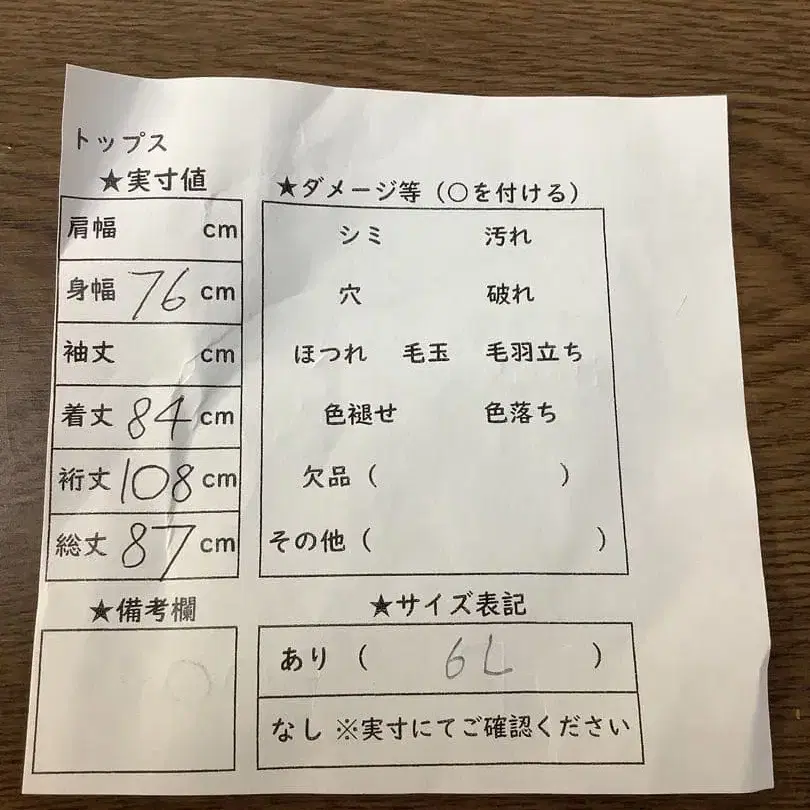 トップス
★実寸値
肩幅 cm
身幅 76 cm
袖丈 cm
着丈 84 cm
裄丈 108 cm
総丈 87 cm
★備考欄
★ダメージ等（○を付ける）
シミ 汚れ
穴 破れ
ほつれ 毛玉 毛羽立ち
色褪せ 色落ち
欠品（ ）
その他（ ）
★サイズ表記
あり （ 6L ）
なし ※実寸にてご確認ください